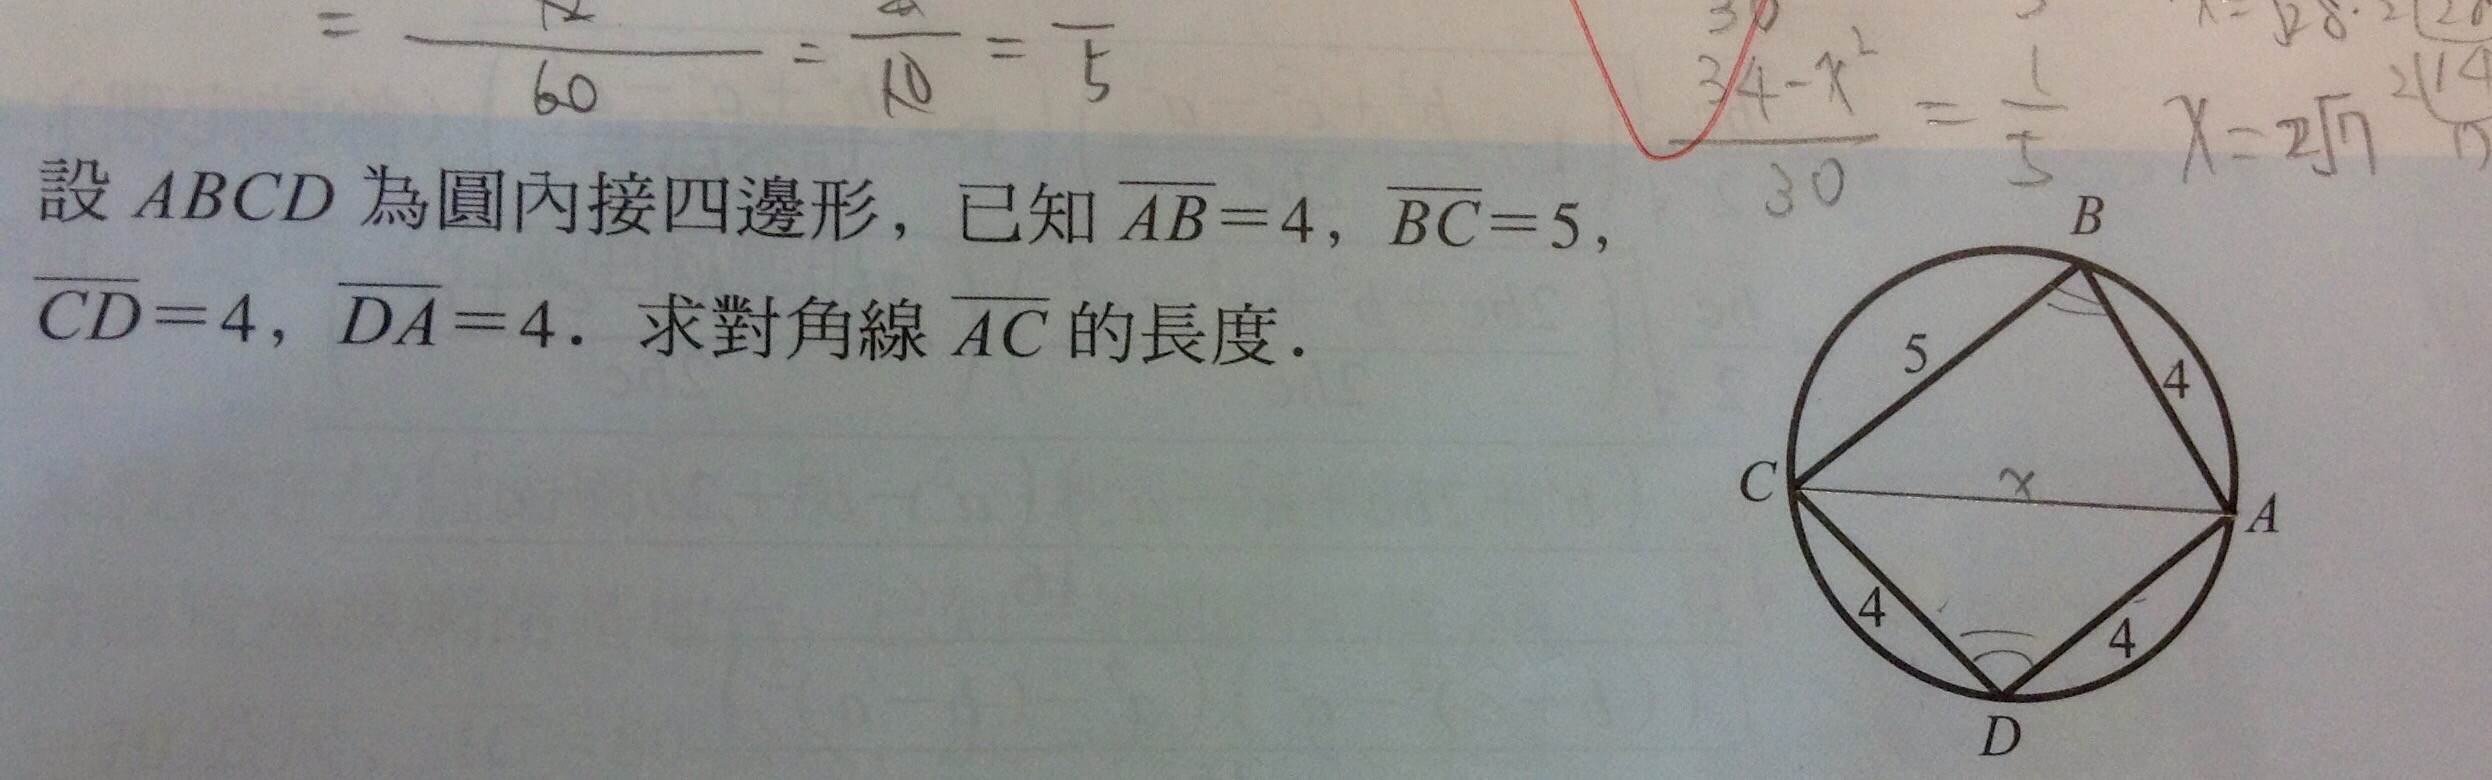 = 60 = 10 = 5
30
34-x² / 30 = 1/5
x=2√7
設 ABCD 為圓內接四邊形，已知 AB=4，BC=5，
CD=4，DA=4．求對角線 AC 的長度．
B
5
4
C
x
A
4
4
D